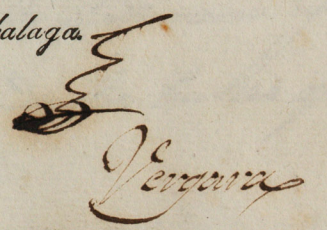 alaga.
Vergara